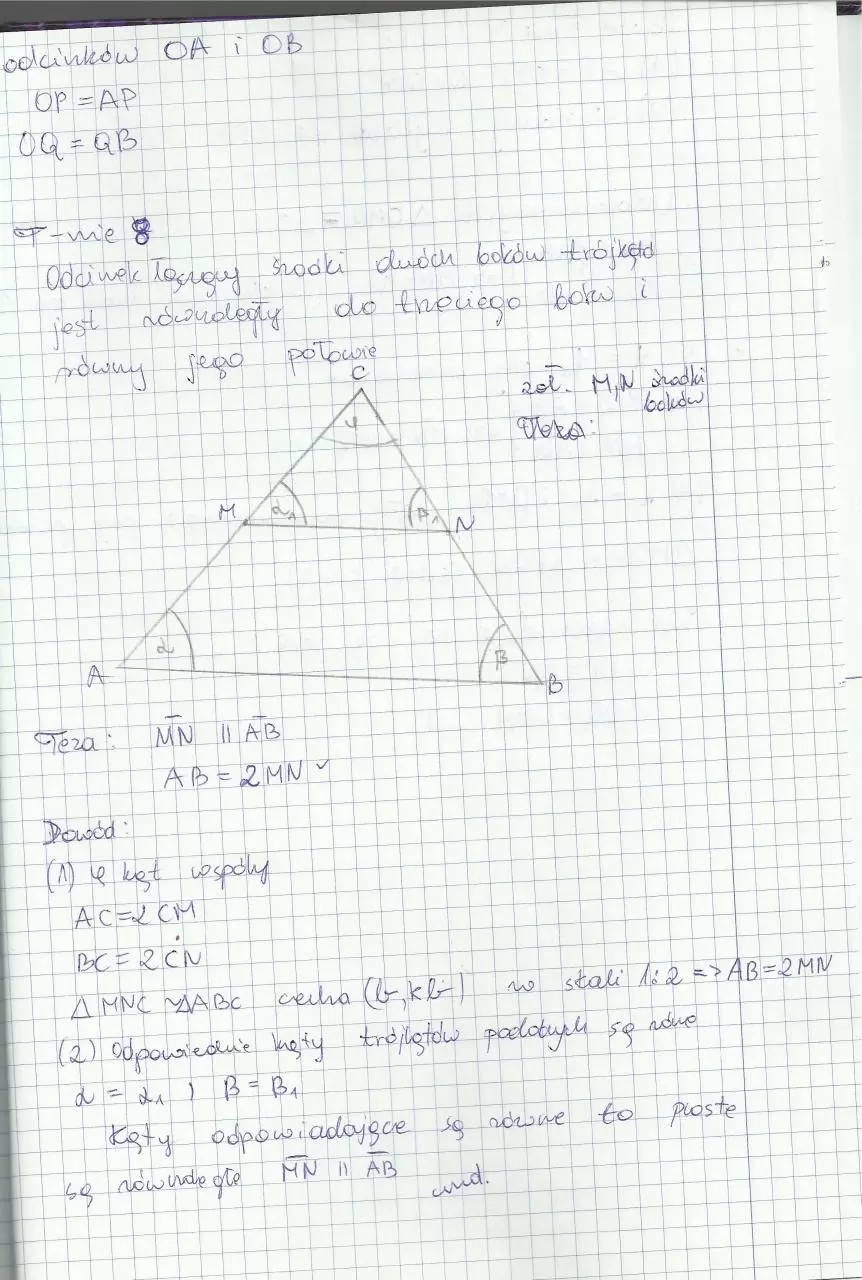 odcinków OA i OB
OP = AP
OQ = QB
T-nie 8
Odcinek łączący środki dwóch boków trójkąta
jest równoległy do trzeciego boku i
równy jego połowie
C
zał. M, N środki
boków
Teza:
φ
M α₁ β₁ N
α β
A B
Teza: MN || AB
AB = 2MN ✓
Dowód:
(1) φ kąt wspólny
AC = 2 CM
BC = 2 CN
Δ MNC ~ ΔABC cecha (b, k, b) w skali 1:2 => AB = 2MN
(2) Odpowiednie kąty trójkątów podobnych są równe
α = α₁ , β = β₁
Kąty odpowiadające są równe to proste
są równoległe MN || AB
cnd.